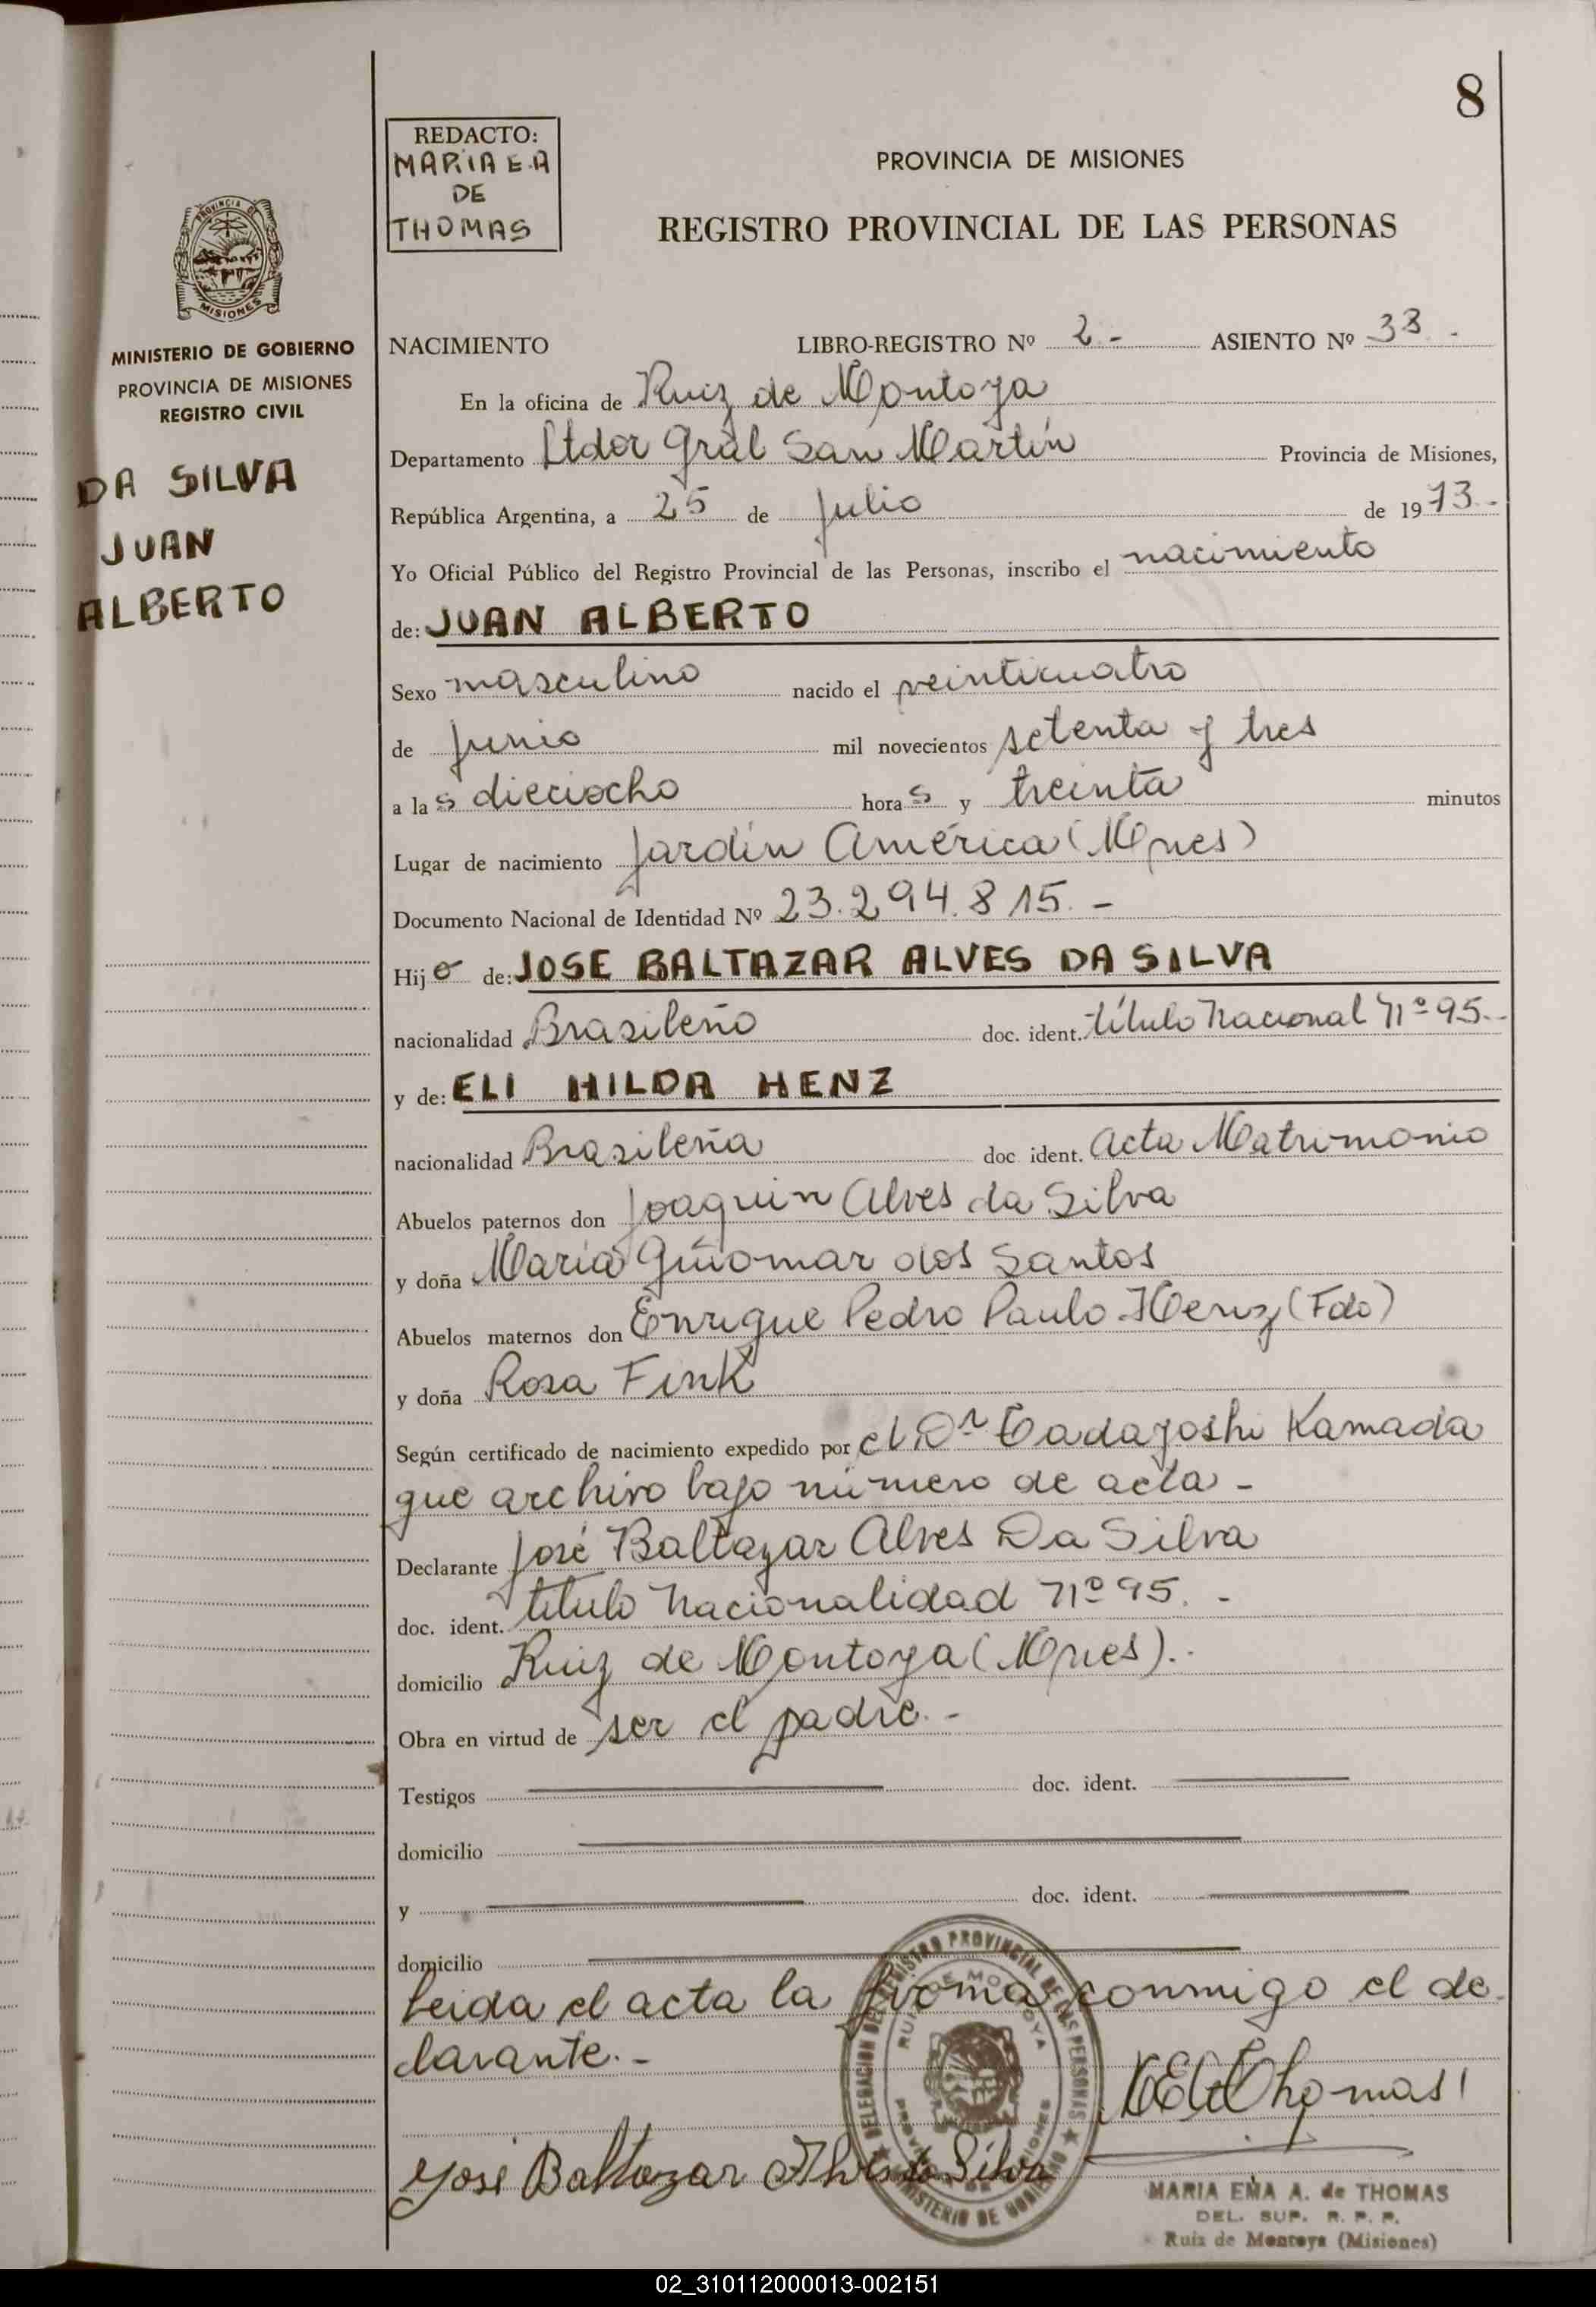 8
REDACTO:
MARIA E.A
DE
THOMAS
PROVINCIA DE MISIONES
REGISTRO PROVINCIAL DE LAS PERSONAS
PROVINCIA DE
MISIONES
MINISTERIO DE GOBIERNO
PROVINCIA DE MISIONES
REGISTRO CIVIL
DA SILVA
JUAN
ALBERTO
NACIMIENTO LIBRO-REGISTRO Nº 2 - ASIENTO Nº 38 -
En la oficina de Ruiz de Montoya
Departamento Ltdor Gral San Martín Provincia de Misiones,
República Argentina, a 25 de Julio de 1973.-
Yo Oficial Público del Registro Provincial de las Personas, inscribo el nacimiento
de: JUAN ALBERTO
Sexo masculino nacido el veinticuatro
de Junio mil novecientos setenta y tres
a las dieciocho horas y treinta minutos
Lugar de nacimiento Jardín América (Mnes)
Documento Nacional de Identidad Nº 23.294.815.-
Hijo de: JOSE BALTAZAR ALVES DA SILVA
nacionalidad Brasileño doc. ident. título Nacional Nº 95.-
y de: ELI HILDA HENZ
nacionalidad Brasileña doc ident. Acta Matrimonio
Abuelos paternos don Joaquin Alves da Silva
y doña María Güiomar dos Santos
Abuelos maternos don Enrique Pedro Paulo Henz (Fdo)
y doña Rosa Fink
Según certificado de nacimiento expedido por el Dr Tadayoshi Kamada
que archivo bajo número de acta -
Declarante José Baltazar Alves Da Silva
doc. ident. título Nacionalidad Nº 95. -
domicilio Ruiz de Montoya (Mnes).-
Obra en virtud de ser el padre.-
Testigos doc. ident.
domicilio
y doc. ident.
domicilio
Leida el acta la firma conmigo el de
clarante.-
DELEGACION DEL REGISTRO PROVINCIAL DE LAS PERSONAS
RUIZ DE MONTOYA
PROVINCIA DE MISIONES
MINISTERIO DE GOBIERNO
Thomas
José Baltazar Alves da Silva
MARIA EMA A. de THOMAS
DEL. SUP. R. P. P.
Ruiz de Montoya (Misiones)
02_310112000013-002151